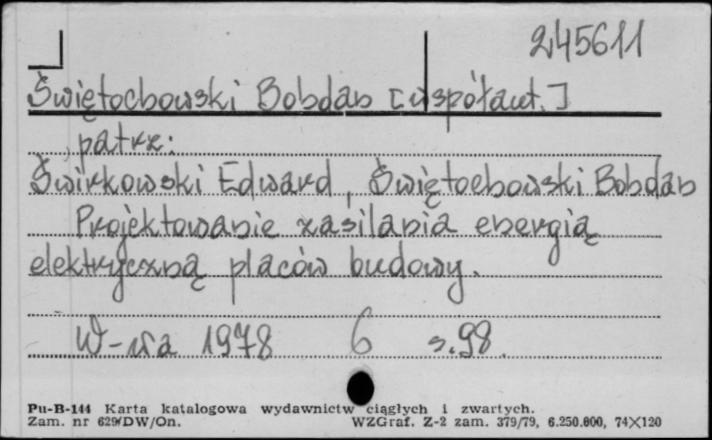 245611
Świętochowski Bohdan [współaut.]
patrz:
Świrkowski Edward, Świętochowski Bohdan
Projektowanie zasilania energią
elektryczną placów budowy.
W-wa 1978 6 s. 98.
Pu-B-144 Karta katalogowa wydawnictw ciągłych i zwartych.
Zam. nr 629/DW/On. WZGraf. Z-2 zam. 379/79, 6.250.000, 74X120